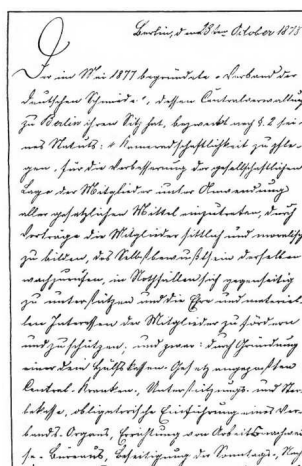 Berlin, den 28ten October 1878
Der im Mai 1877 begründete „Verband der
deutschen Schmiede", dessen Centralverwaltung
zu Berlin ihren Sitz hat, bezweckt nach §. 2 sei-
nes Statuts: „Kameradschaftlichkeit zu pfle-
gen, für die Verbesserung der gesellschaftlichen
Lage der Mitglieder unter Anwendung
aller gesetzlichen Mittel einzutreten, durch
Vorträge die Mitglieder sittlich und moralisch
zu bilden, das Selbstbewußtsein derselben
wachzurufen, in Nothfällen sich gegenseitig
zu unterstützen und die Ehre und materiel-
len Interessen der Mitglieder zu fördern
und zu schützen, und zwar: durch Gründung
einer dem Hülfskassen-Gesetz angepaßten
Central-Kranken-, Unterstützungs- und Ster-
bekasse, obligatorische Einführung eines Ver-
bands-Organs, Errichtung von Arbeitsnachwei-
se-Büreaus, Beseitigung der Sonntags-,